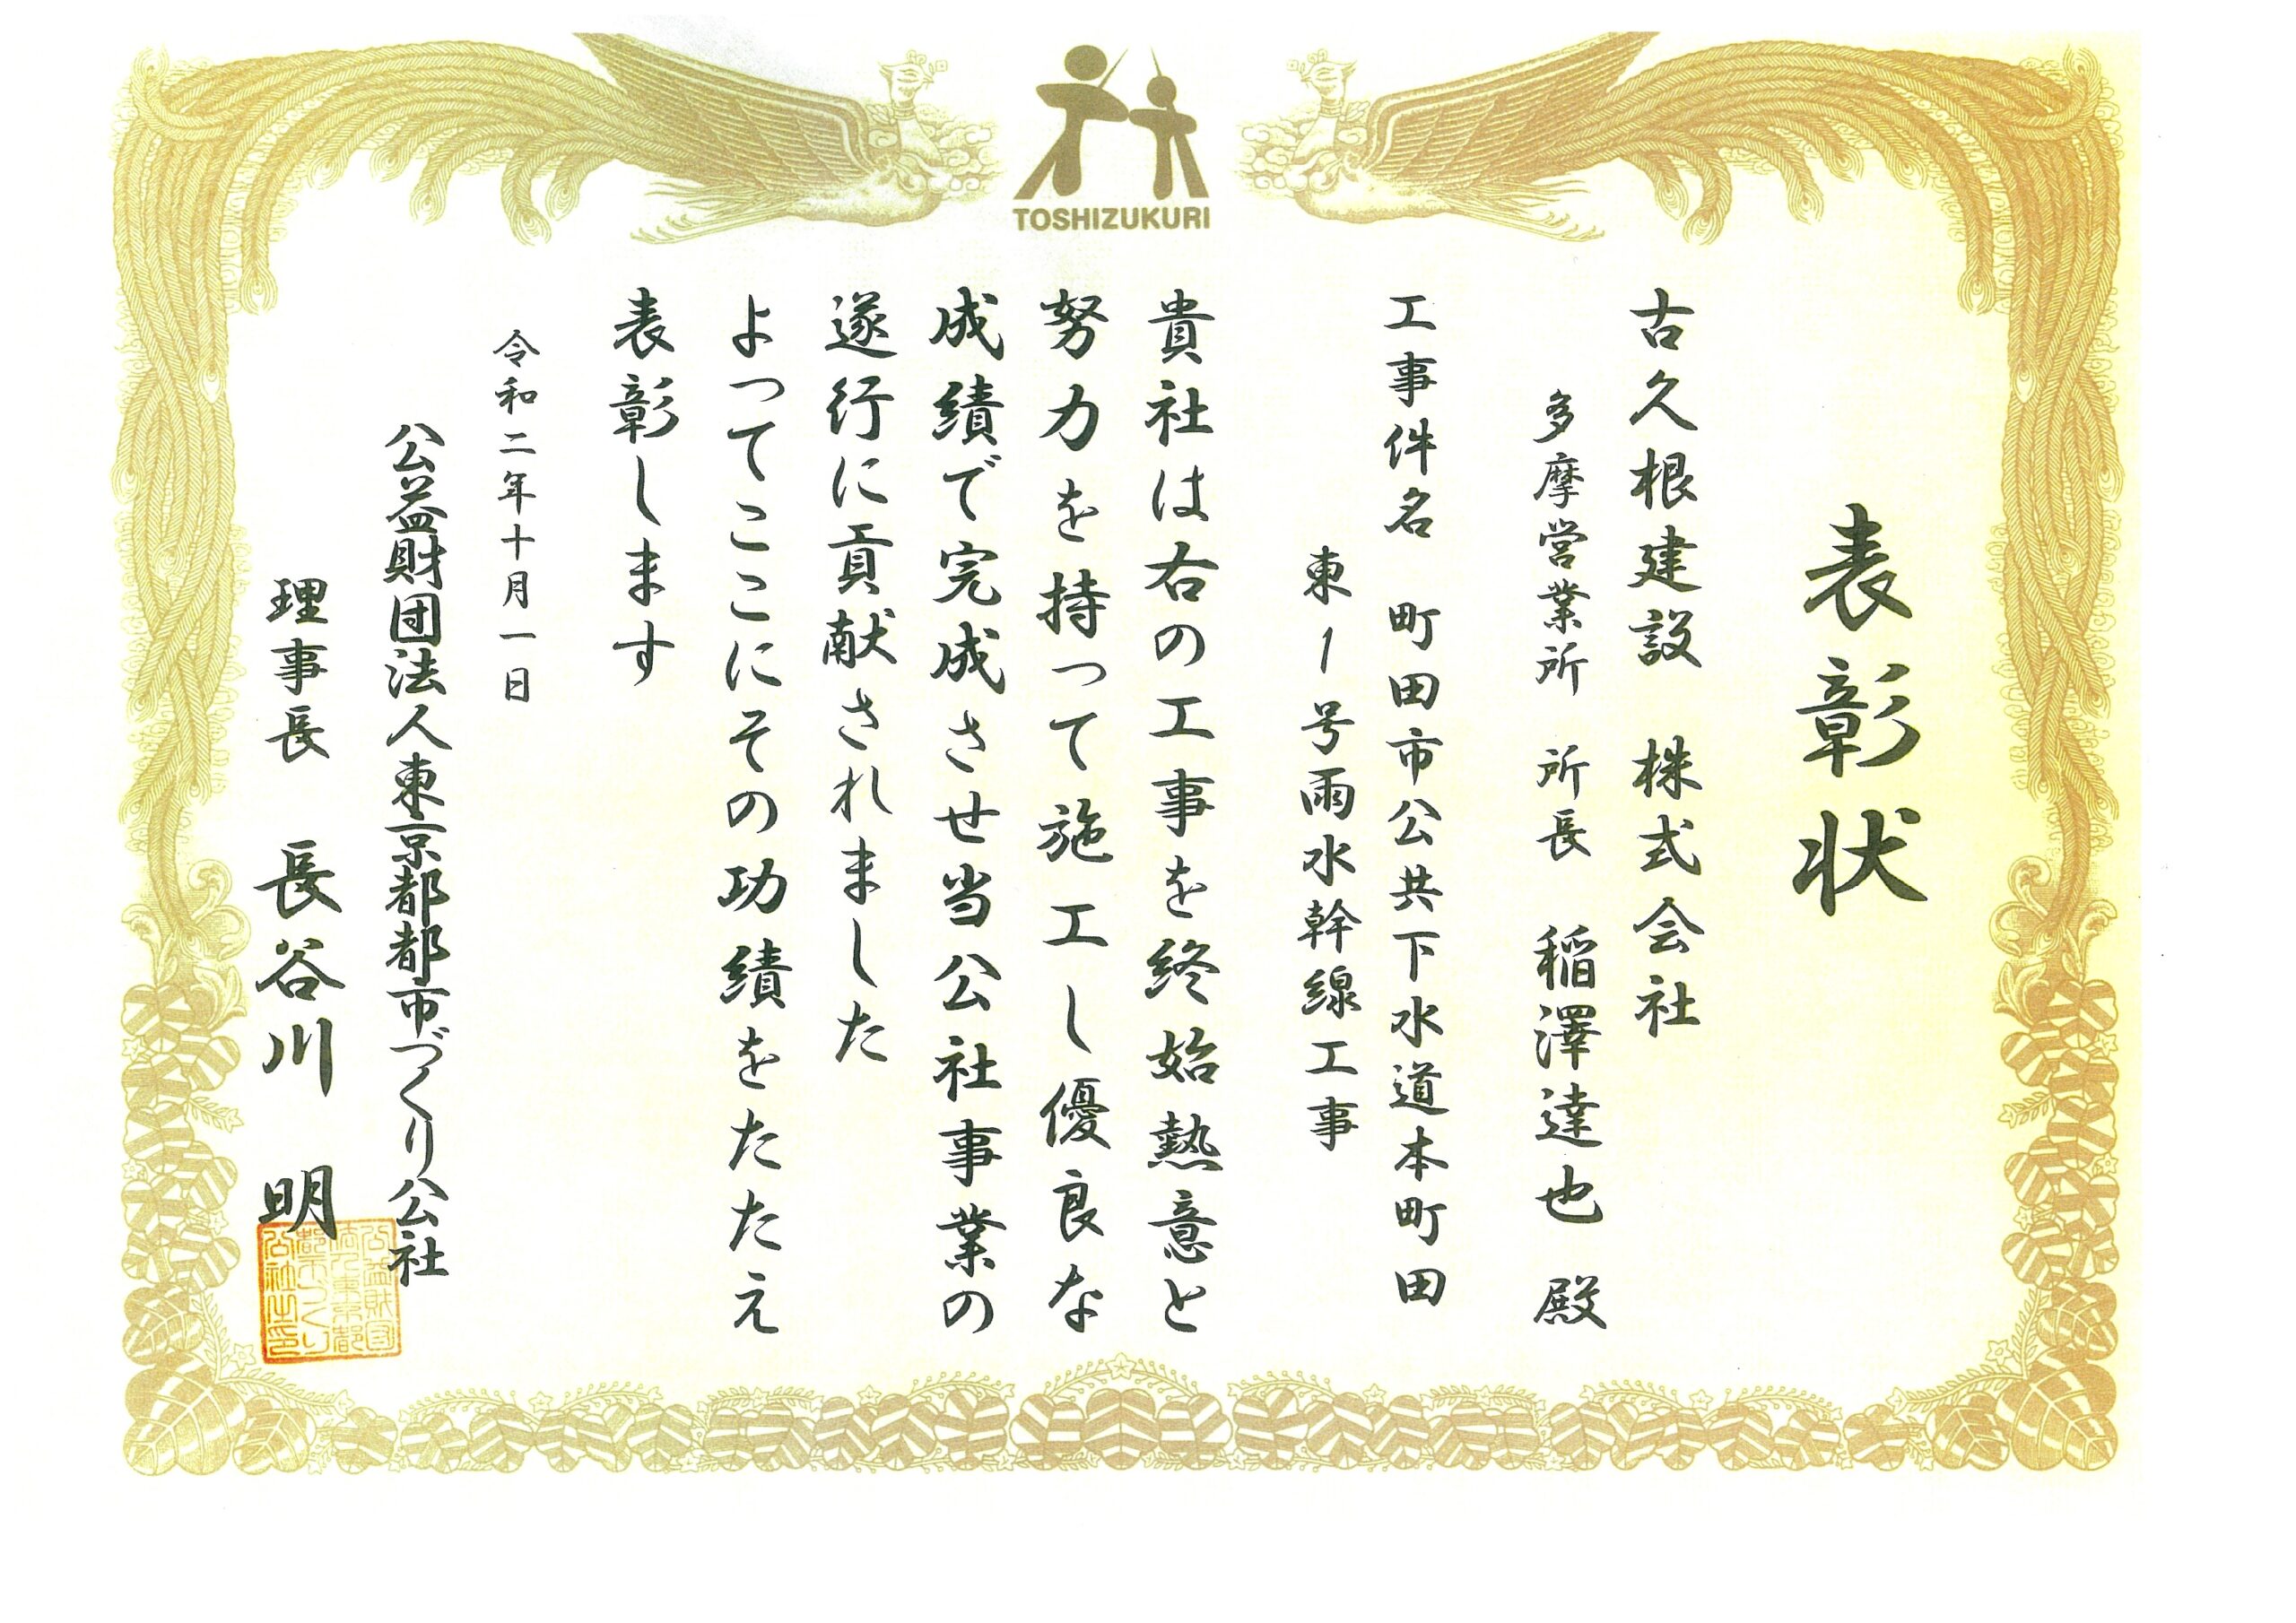 TOSHIZUKURI
表彰状
古久根建設 株式会社
多摩営業所 所長 稲澤達也 殿
工事件名 町田市公共下水道本町田
東1号雨水幹線工事
貴社は右の工事を終始熱意と
努力を持って施工し優良な
成績で完成させ当公社事業の
遂行に貢献されました
よってここにその功績をたたえ
表彰します
令和二年十月一日
公益財団法人東京都都市づくり公社
理事長 長谷川 明
公益財団
法人東京都
都市づくり
公社之印